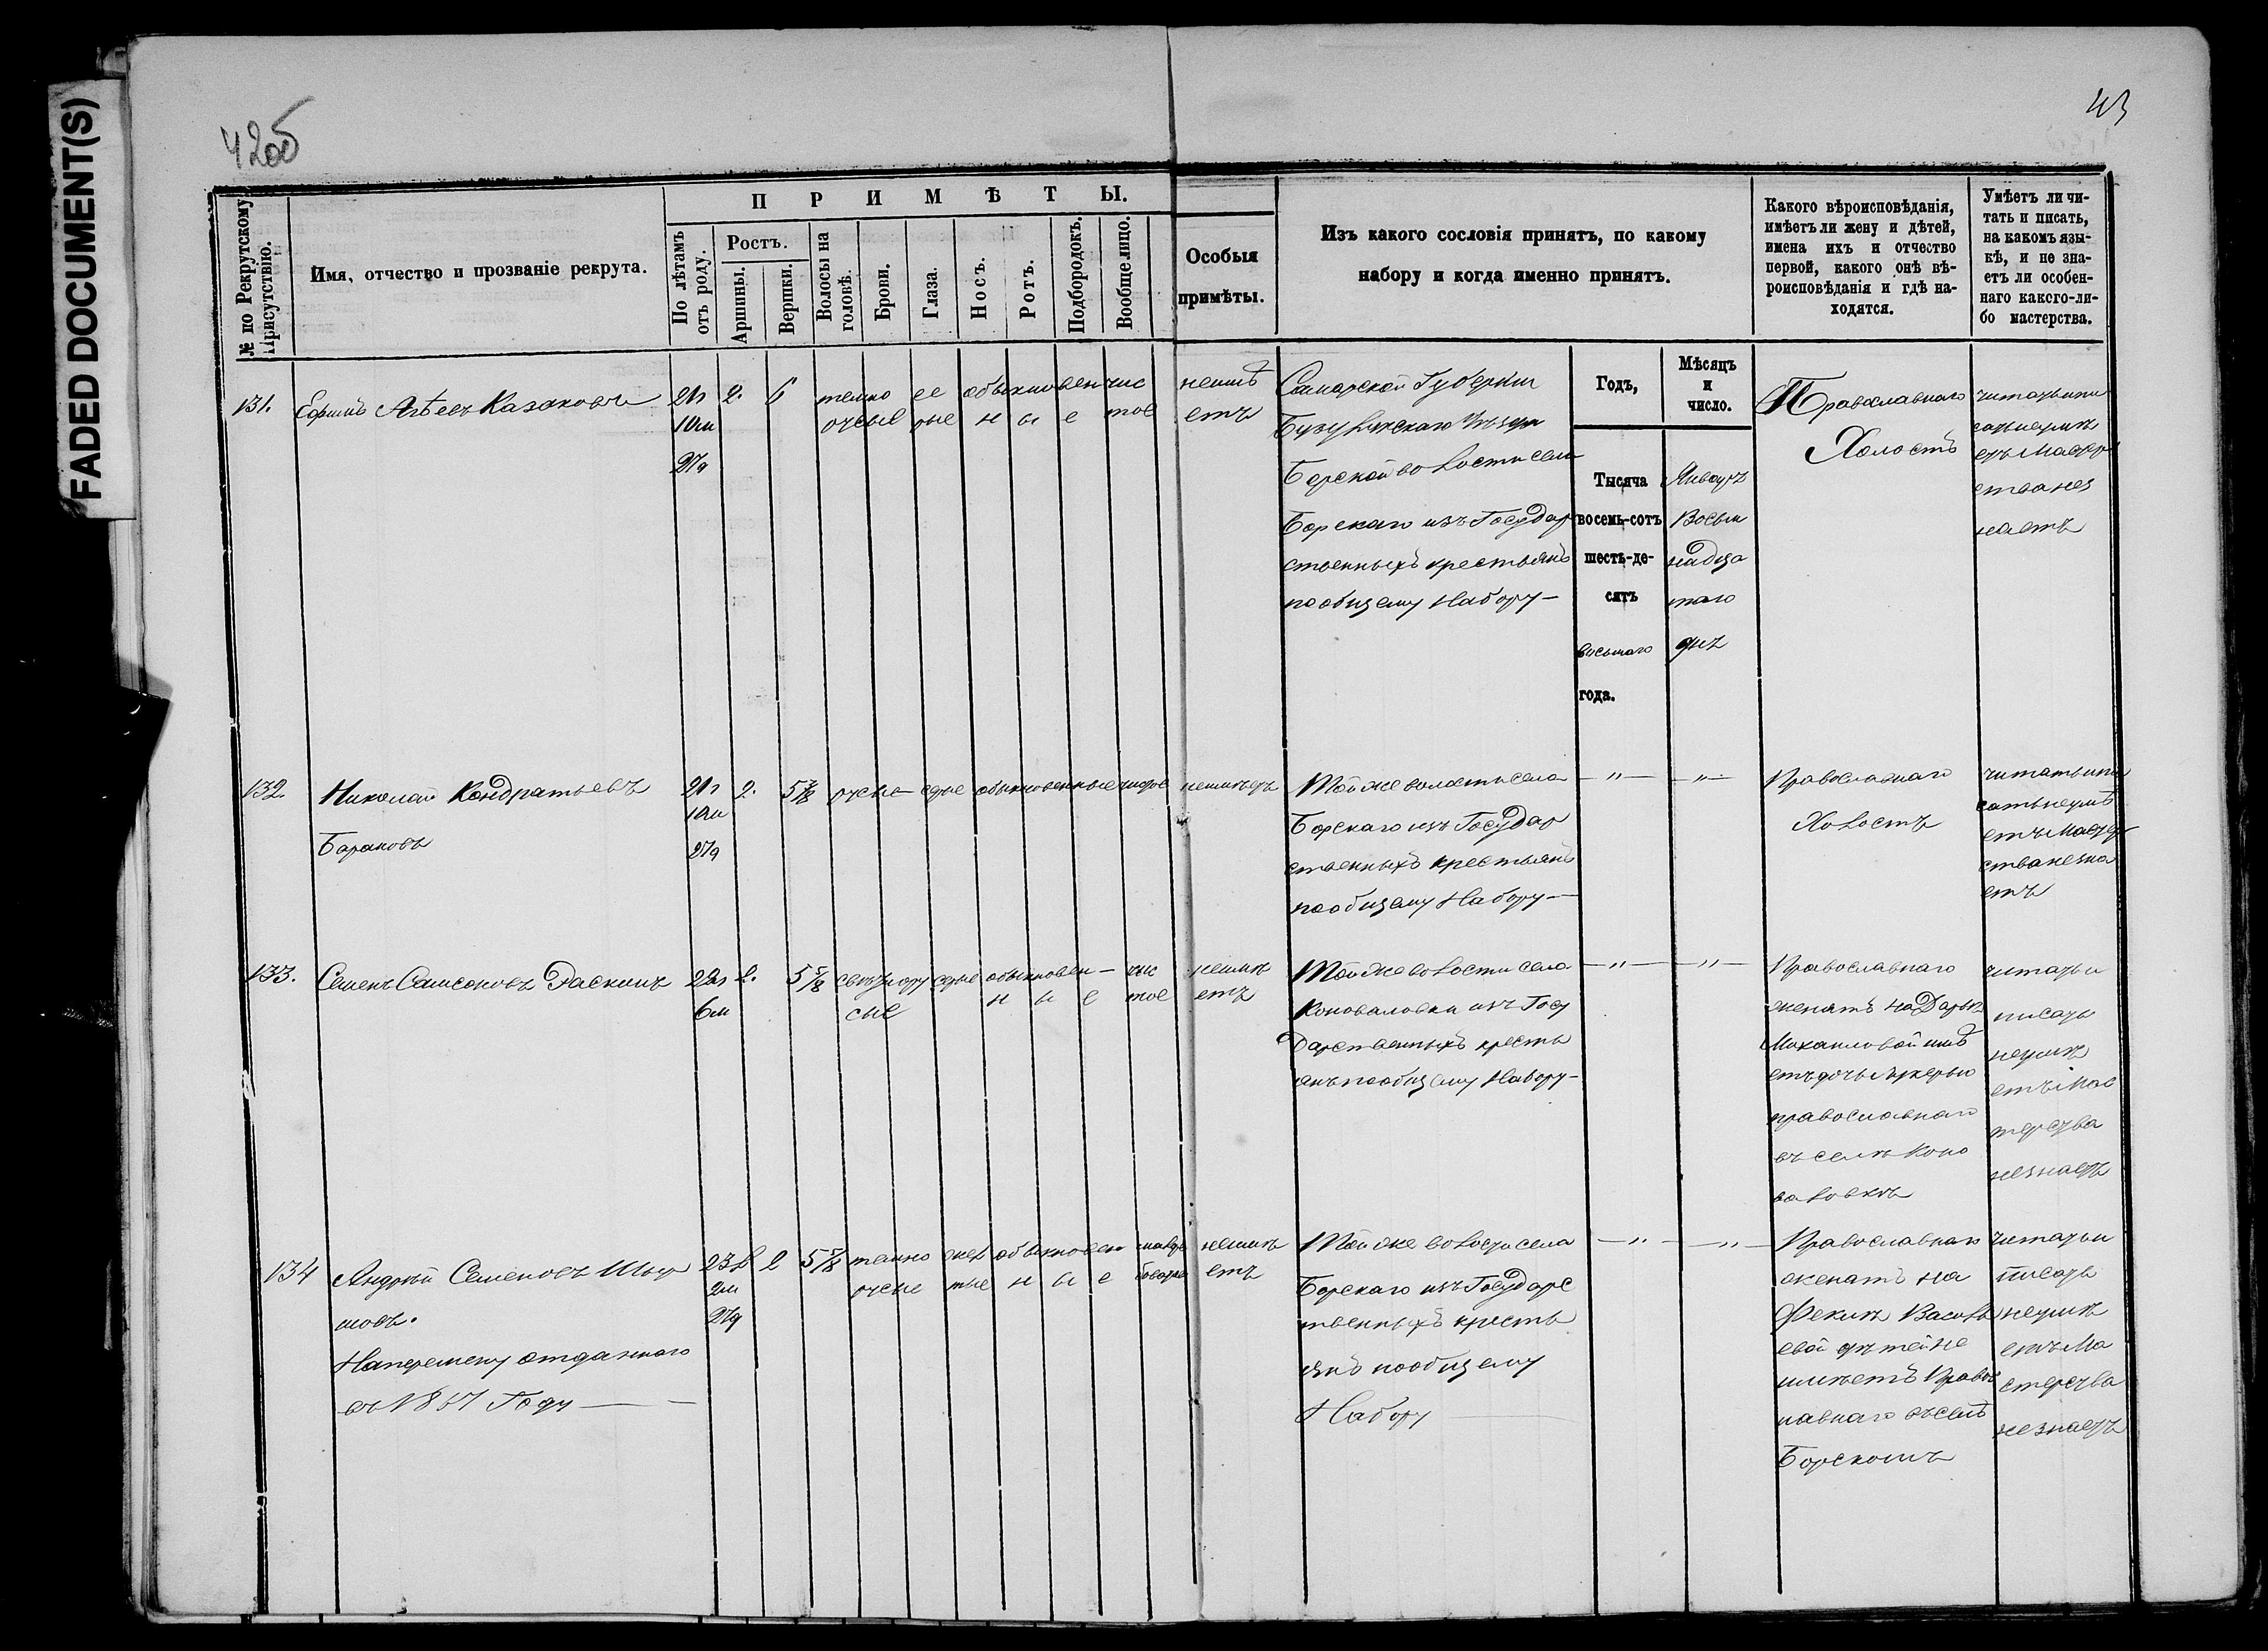 FADED DOCUMENT(S)
42об
43
№ по Рекрутскому Присутствію.
Имя, отчество и прозваніе рекрута.
ПРИМѢТЫ.
По лѣтамъ отъ роду.
Ростъ.
Аршины.
Вершки.
Волосы на головѣ.
Брови.
Глаза.
Носъ.
Ротъ.
Подбородокъ.
Вообще лицо.
Особыя
примѣты.
Изъ какого сословія принятъ, по какому
набору и когда именно принятъ.
Какого вѣроисповѣданія,
имѣетъ ли жену и дѣтей,
имена ихъ и отчество
первой, какого онѣ вѣ-
роисповѣданія и гдѣ на-
ходятся.
Умѣетъ ли чи-
тать и писать,
на какомъ язы-
кѣ, и не зна-
етъ ли особен-
наго какого-ли-
бо мастерства.
Годъ,
Мѣсяцъ
и
число.
131.
Ефимъ Агѣевъ Казаковъ
21л
10м
27д
2.
6
темно
русые
се
рые
обыкновен
ные
чис
тое
неимѣ
етъ
Самарской Губерніи
Бузулукскаго Уѣзда
Борской волости села
Борскаго изъ Государ
ственныхъ крестьянъ
пообщему Набору—
Тысяча
восемь-сотъ
шесть-де-
сятъ
восьмаго
года.
Января
Восем
надца
таго
дня
Православнаго
Холостъ
читать и пи
сать неумѣ
етъ Мастер
ства нез
наетъ
132.
Николай Кондратьевъ
Барановъ
21л
10м
27д
2.
5⅞
русые
сѣрые
обыкновенные
чистое
неимѣетъ
Той же волости села
Борскаго изъ Государ
ственныхъ крестьянъ
пообщему Набору—
—"—
—"—
Православнаго
Холостъ
читать и пи
сать неумѣ
етъ Мастер
ства незна
етъ
133.
Семенъ Самсоновъ
22л
6м
2.
5⅞
свѣтлору
сые
сѣрые
обыкновен—
ные
чис
тое
неимѣ
етъ
Той же волости села
Коноваловки изъ Госу
Дарственныхъ кресть
янъ пообщему Набору—
—"—
—"—
Православнаго
женатъ на Дарьѣ
Михайловой имѣ
етъ дочь Лукерью
православнаго
въ селѣ Коно
валовкѣ
читать и
писать
неумѣ
етъ Мас
терства
незнаетъ
134
Андрей Семеновъ
мовъ.
Наперемену отданнаго
въ 1867 Году —
23л
2м
27д
2
5⅞
темно
русые
жел
тые
обыкновен
ные
неимѣ
етъ
Той же волости села
Борскаго изъ Государс
твенныхъ кресть
янъ пообщему
Набору —
—"—
—"—
Православнаго
женатъ на
Феклѣ Василь
евой дѣтей не
имѣетъ Правос
лавнаго въ селѣ
Борскомъ
читать и
писать
неумѣ
етъ Ма
стерства
незнаетъ